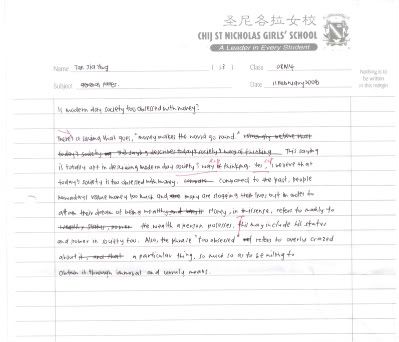 圣尼各拉女校
CHIJ ST NICHOLAS GIRLS' SCHOOL
A Leader in Every Student
Name Tan Jia Ying ( 13 ) Class
Subject general paper Date 11 February 2008
Nothing is to be written in this margin
Is modern day society too obsessed with money?
There's a saying that goes, "money makes the world go round." strongly believe that
today's society This saying describes today's society's way of thinking. This saying
is totally apt in describing modern day society's way of thinking. I believe that
today's society is too obsessed with money. Compared to the past, people
nowadays value money too much and are many are slogging their lives out in order to
attain their dream of being wealthy Money, in this sense, refers to mainly to
the wealth a person possesses, this may include his status
and power in society too. Also, the phrase "too obsessed" refers to overly crazed
about a particular thing, so much so as to be willing to
obtain it through immoral and unruly means.